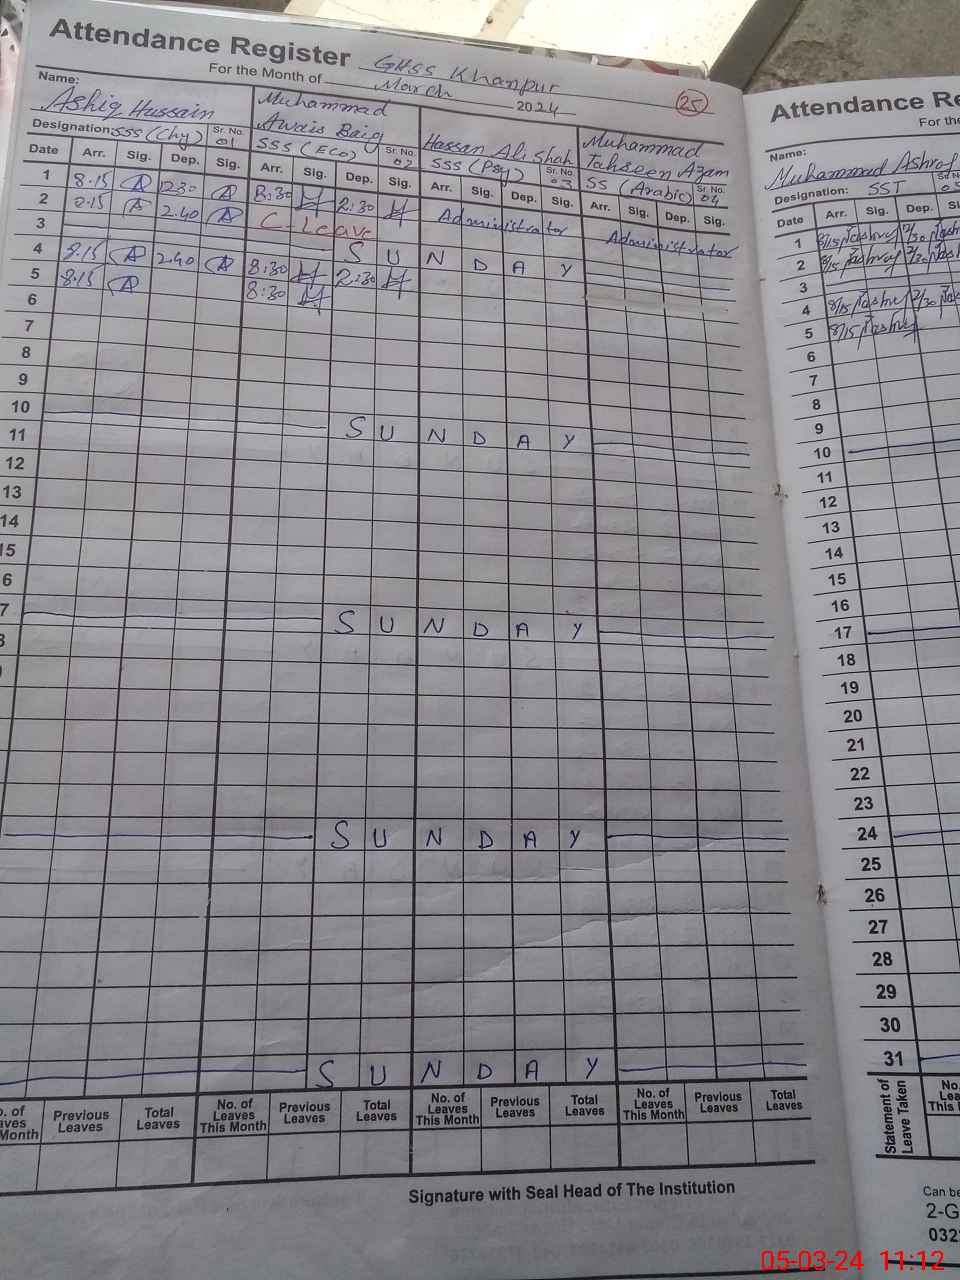 Attendance Register GHSS Khanpur
For the Month of March 2024 25
Name: Ashiq Hussain Muhammad Awais Baig Hassan Ali Shah Muhammad Tahseen Azam
Designation: SSS (Chy) Sr. No. 01 SSS (Eco) Sr. No. 02 SSS (Psy) Sr. No. 03 SS (Arabic) Sr. No. 04
Date Arr. Sig. Dep. Sig. Arr. Sig. Dep. Sig. Arr. Sig. Dep. Sig. Arr. Sig. Dep. Sig.
1 8.15 1230 8:30 2:30 Administrator Administrator
2 8.15 2.40 C-Leave
3 SUNDAY
4 8.15 2.40 8:30 2:30
5 8.15 8:30
6
7
8
9
10 SUNDAY
11
12
13
14
15
6
7 SUNDAY
SUNDAY
SUNDAY
No. of Leaves This Month Previous Leaves Total Leaves No. of Leaves This Month Previous Leaves Total Leaves No. of Leaves This Month Previous Leaves Total Leaves No. of Leaves This Month Previous Leaves Total Leaves
Signature with Seal Head of The Institution
Attendance Re
For the
Name:
Muhammad Ashraf
Designation: SST
Date Arr. Sig. Dep.
1 8/15 Tashref 2/30
2 8/15 Tashref 2/30
3
4 8/15 Tashref 2/30
5 8/15 Tashref
6
7
8
9
10
11
12
13
14
15
16
17
18
19
20
21
22
23
24
25
26
27
28
29
30
31
Statement of Leave Taken
No.
Lea
This
Can be
2-G
032
05-03-24 11:12